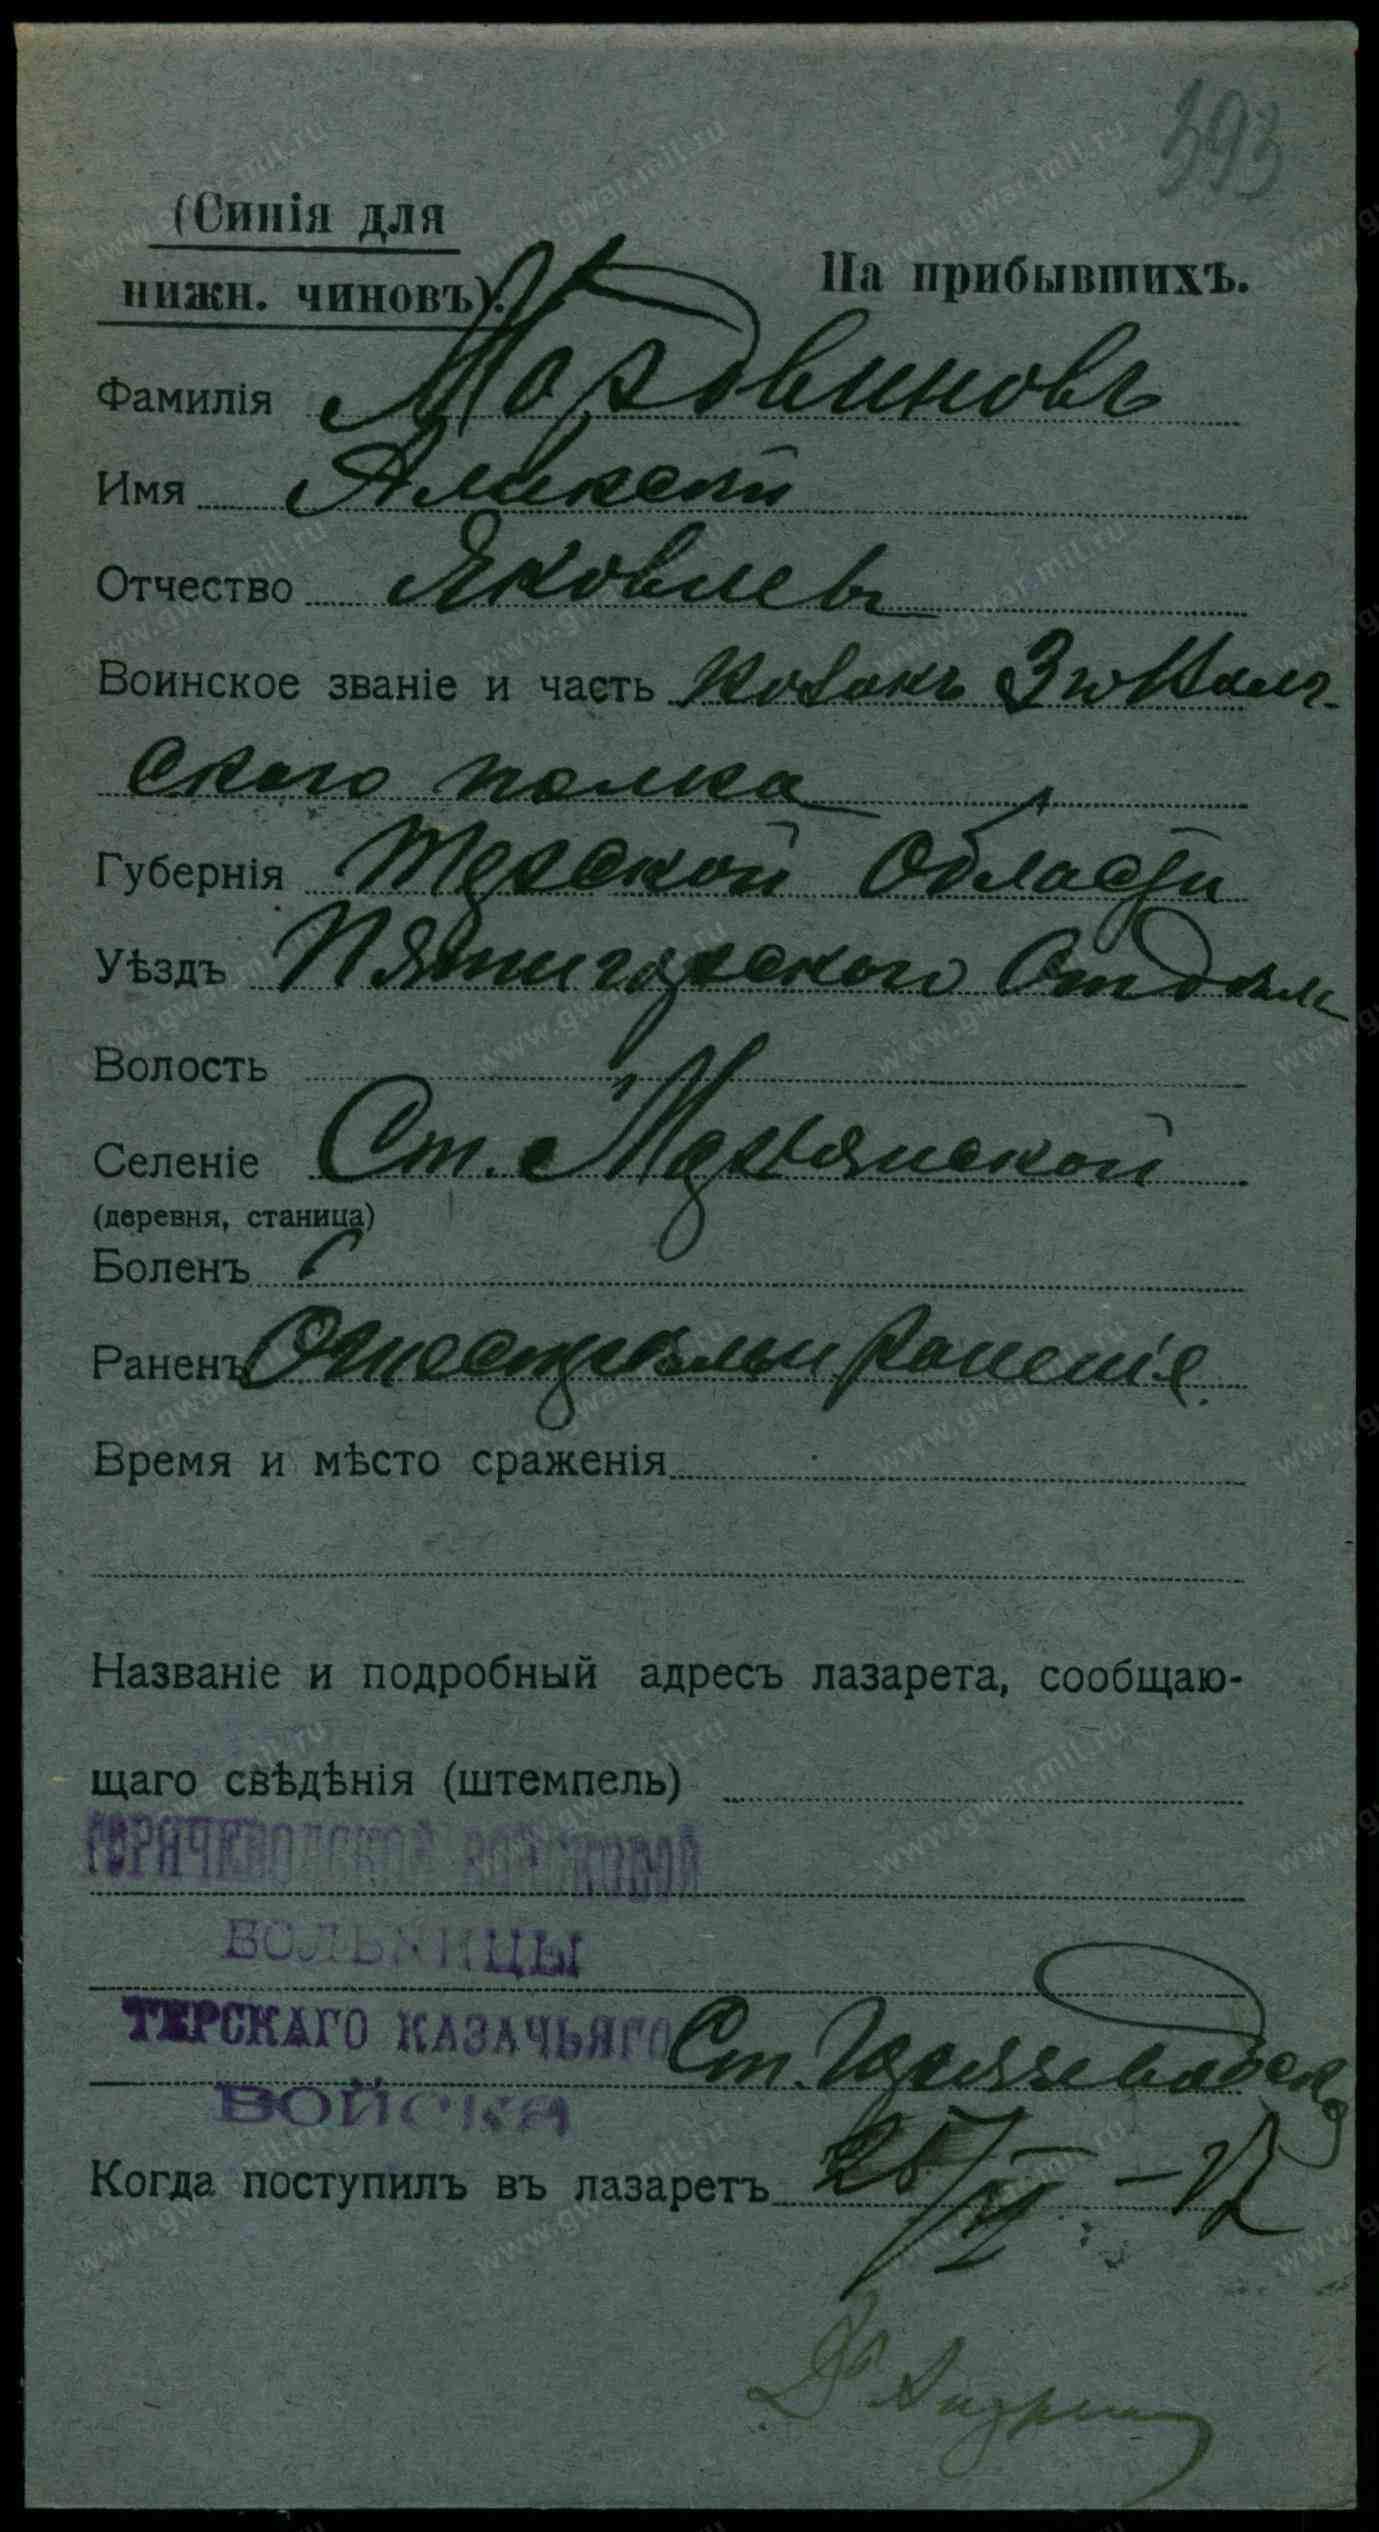 393
(Синія для
нижн. чиновъ).
На прибывшихъ.
Фамилія Мордвиновъ
Имя Алексей
Отчество Яковлевъ
Воинское званіе и часть Козакъ 3го
ского полка
Губернія Терской Области
Уѣздъ Пятигорского Отдѣла
Волость
Селеніе Ст. Марьянской
(деревня, станица)
Боленъ
Раненъ Огнестрельн ранение
Время и мѣсто сраженія
Названіе и подробный адресъ лазарета, сообщаю-
щаго свѣдѣнія (штемпель)
ГОРЯЧЕВОДСКОЙ ВОЙСКОВОЙ
БОЛЬНИЦЫ
ТЕРСКАГО КАЗАЧЬЯГО Ст. Горячеводская
ВОЙСКА
Когда поступилъ въ лазаретъ
www.gwar.mil.ru